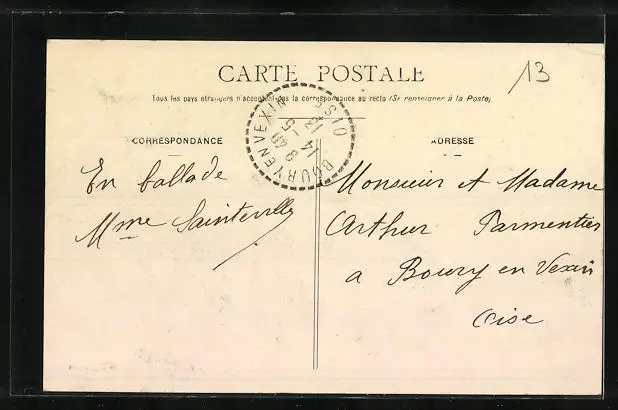 13
CARTE POSTALE
Tous les pays étrangers n'acceptent pas la correspondance au recto (Se renseigner à la Poste)
CORRESPONDANCE
ADRESSE
BOURY EN VEXIN
En ballade
Mme Sainteville
Monsieur et Madame
Arthur Parmentier
a Boury en Vexin
Oise